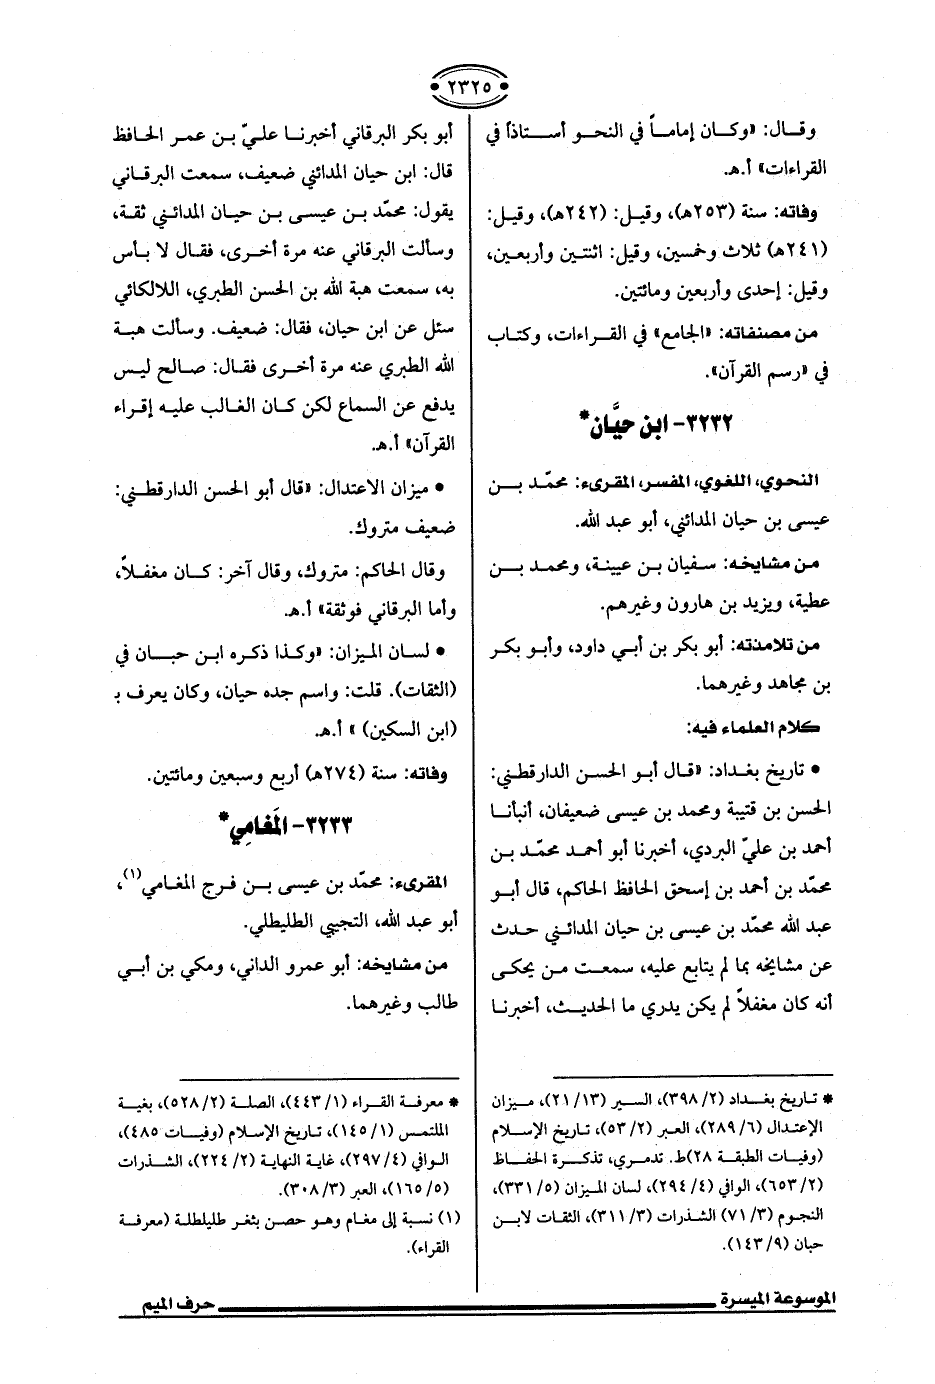 ٢٣٢٥
وقال: «وكان إماماً في النحو أستاذاً في
القراءات» أ.هـ.
وفاته: سنة (٢٥٣هـ)، وقيل: (٢٤٢هـ)، وقيل:
(٢٤١هـ) ثلاث وخمسين، وقيل: اثنتين وأربعين،
وقيل: إحدى وأربعين ومائتين.
من مصنفاته: «الجامع» في القراءات، وكتاب
في «رسم القرآن».
٣٢٣٢- ابن حيَّان*
النحوي، اللغوي، المفسر، المقرىء: محمّد بن
عيسى بن حيان المدائني، أبو عبد الله.
من مشايخه: سفيان بن عيينة، ومحمد بن
عطية، ويزيد بن هارون وغيرهم.
من تلامذته: أبو بكر بن أبي داود، وأبو بكر
بن مجاهد وغيرهما.
كلام العلماء فيه:
• تاريخ بغداد: «قال أبو الحسن الدارقطني:
الحسن بن قتيبة ومحمد بن عيسى ضعيفان، أنبأنا
أحمد بن عليّ البردي، أخبرنا أبو أحمد محمّد بن
محمّد بن أحمد بن إسحق الحافظ الحاكم، قال أبو
عبد الله محمّد بن عيسى بن حيان المدائني حدث
عن مشايخه بما لم يتابع عليه، سمعت من يحكى
أنه كان مغفلاً لم يكن يدري ما الحديث، أخبرنا
أبو بكر البرقاني أخبرنا عليّ بن عمر الحافظ
قال: ابن حيان المدائني ضعيف، سمعت البرقاني
يقول: محمّد بن عيسى بن حيان المدائني ثقة،
وسألت البرقاني عنه مرة أخرى، فقال لا بأس
به، سمعت هبة الله بن الحسن الطبري، اللالكائي
سئل عن ابن حيان، فقال: ضعيف. وسألت هبة
الله الطبري عنه مرة أخرى فقال: صالح ليس
يدفع عن السماع لكن كان الغالب عليه إقراء
القرآن» أ.هـ.
• ميزان الاعتدال: «قال أبو الحسن الدارقطني:
ضعيف متروك.
وقال الحاكم: متروك، وقال آخر: كان مغفلاً،
وأما البرقاني فوثقة» أ.هـ.
• لسان الميزان: «وكذا ذكره ابن حبان في
(الثقات). قلت: واسم جده حيان، وكان يعرف بـ
(ابن السكين) » أ.هـ.
وفاته: سنة (٢٧٤هـ) أربع وسبعين ومائتين.
٣٢٣٣- المَغامِي*
المقرىء: محمّد بن عيسى بن فرج المغامي(١)،
أبو عبد الله، التجيبي الطليطلي.
من مشايخه: أبو عمرو الداني، ومكي بن أبي
طالب وغيرهما.
* تاريخ بغداد (٢/ ٣٩٨)، السير (١٣/ ٢١)، ميزان
الإعتدال (٦/ ٢٨٩)، العبر (٢/ ٥٣)، تاريخ الإسلام
(وفيات الطبقة ٢٨)ط. تدمري، تذكرة الحفاظ
(٢/ ٦٥٣)، الوافي (٤/ ٢٩٤)، لسان الميزان (٥/ ٣٣١)،
النجوم (٣/ ٧١) الشذرات (٣/ ٣١١)، الثقات لابن
حبان (٩/ ١٤٣).
* معرفة القراء (١/ ٤٤٣)، الصلة (٢/ ٥٢٨)، بغية
الملتمس (١/ ١٤٥)، تاريخ الإسلام (وفيات ٤٨٥)،
الوافي (٤/ ٢٩٧)، غاية النهاية (٢/ ٢٢٤)، الشذرات
(٥/ ١٦٥)، العبر (٣/ ٣٠٨).
(١) نسبة إلى مغام وهو حصن بثغر طليطلة (معرفة
القراء).
الموسوعة الميسرة
حرف الميم